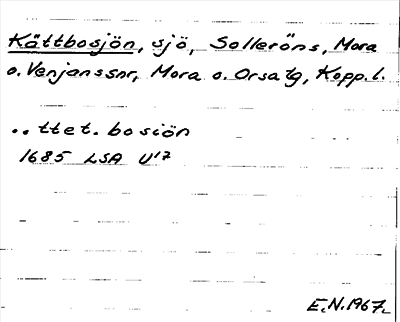 Kättbosjön, sjö, Solleröns, Mora
o. Venjanssnr, Mora o. Orsa tg, Kopp. l.
.. ttet. bosiön
1685 LSA U17
E.N. 1967.